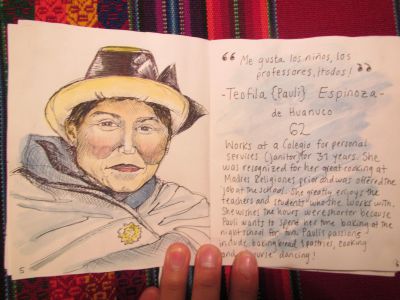 “ Me gusta los niños, los
professores, ¡todos! ”
-Teofila {Pauli} Espinoza-
de Huanuco
62
Works at a Colegio for personal
services (janitor) for 31 years. She
was recognized for her great cooking at
Madres Religiones, prior and was offered the
job at the school. She greatly enjoys the
teachers and students who she works with.
She wishes the hours were shorter because
Pauli wants to spend her time baking at the
night school for fun. Pauli's passions
include baking bread & pastries, cooking
and course dancing!
5